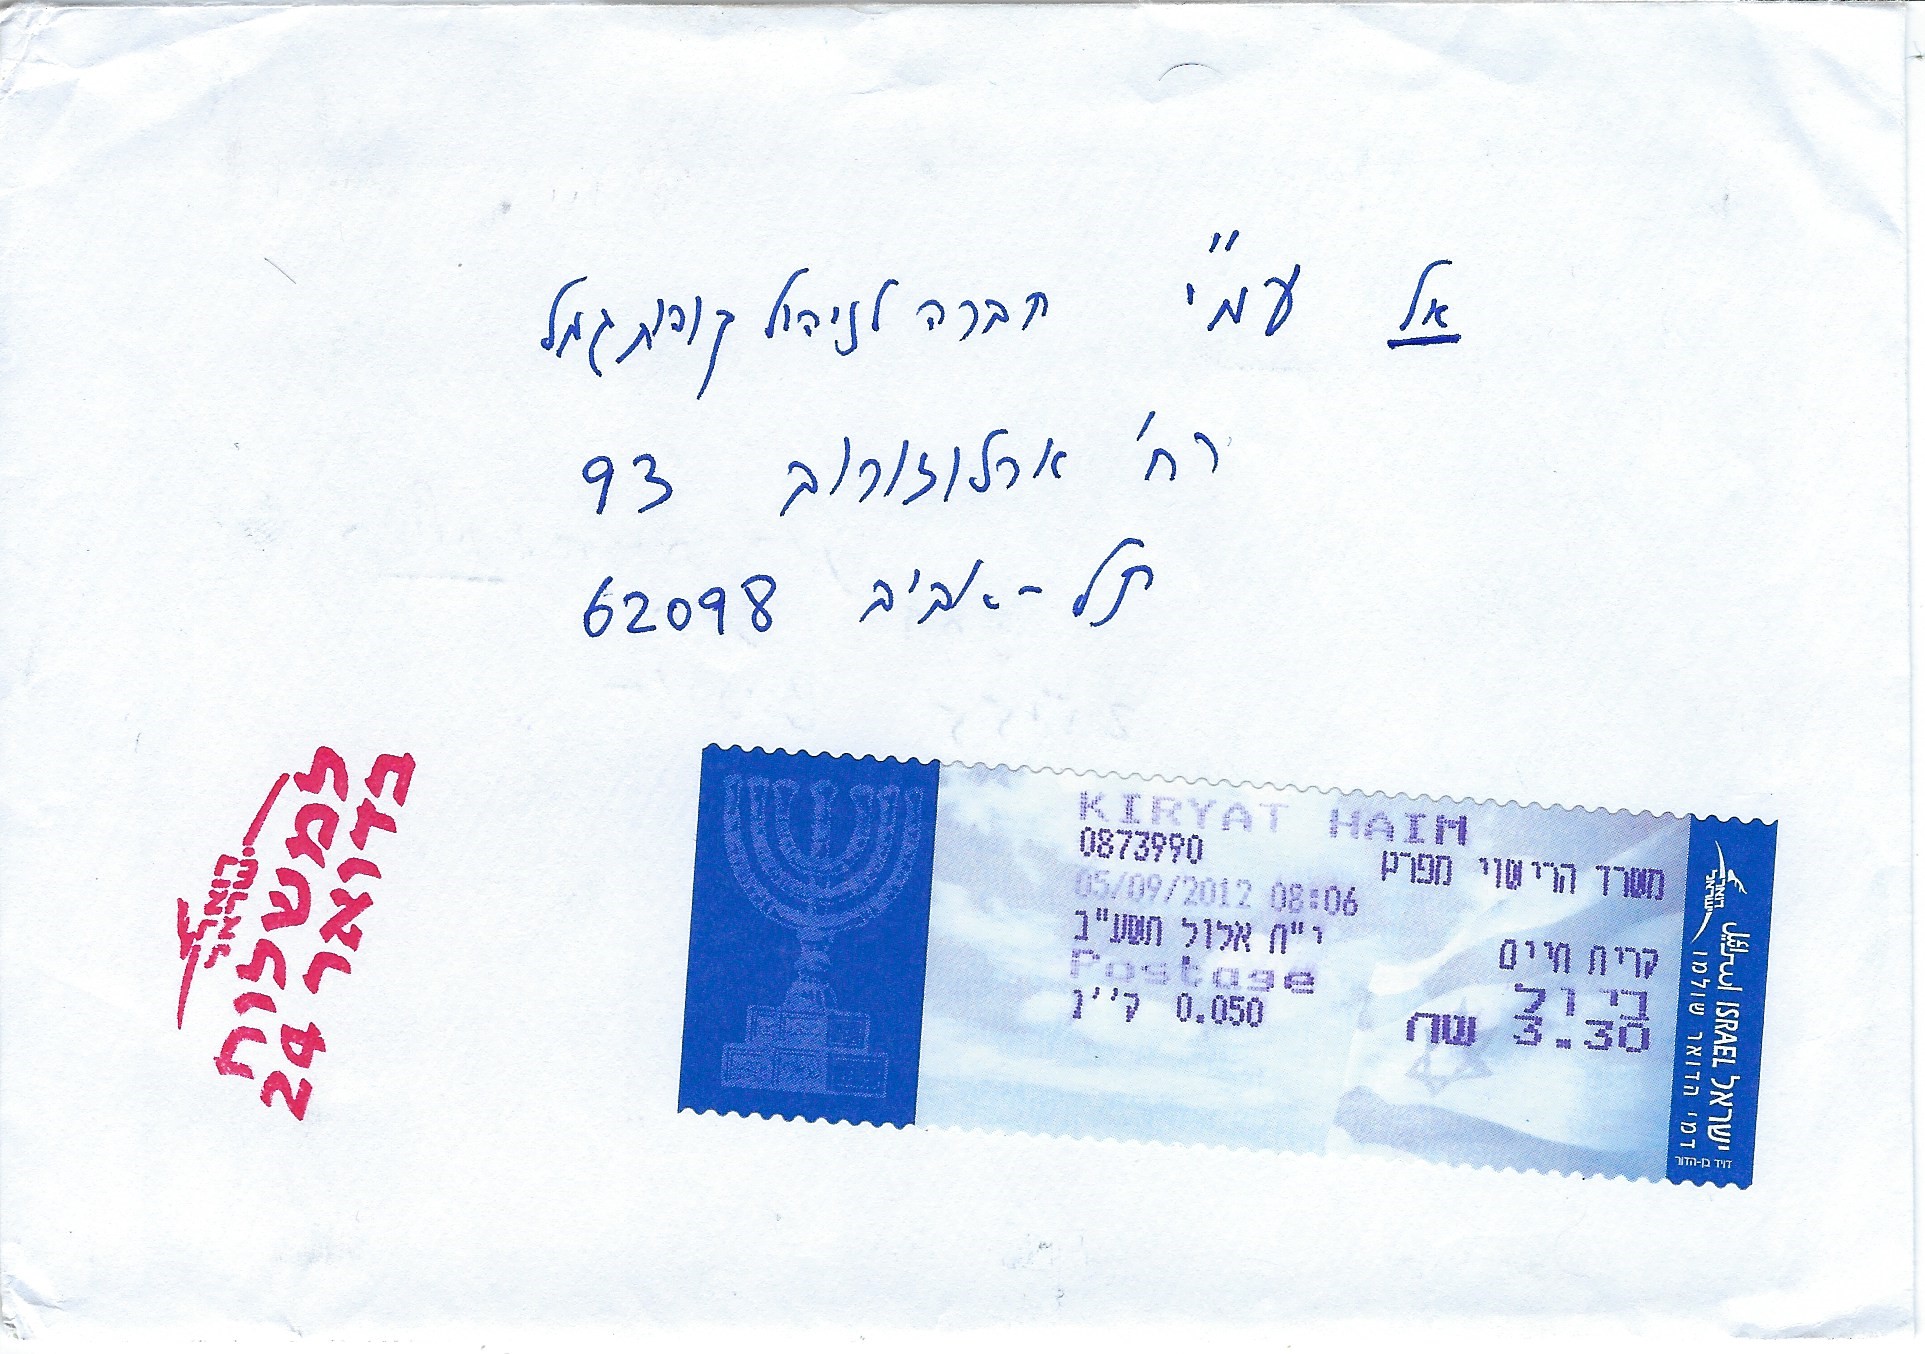 אל עמ"י חברה לניהול קופות גמל
רח' ארלוזורוב 93
תל-אביב 62098
דואר
ישראל
למשלוח
בדואר 24
KIRYAT HAIM
0873990
משרד הרישוי מפרץ
05/09/2012 08:06
י"ח אלול תשע"ב
קרית חיים
Postage
ביול
0.050 ק''ג
3.30 שח
דואר
ישראל
ישראל ISRAEL إسرائيل
דמי הדואר שולמו
דויד בן-הדור